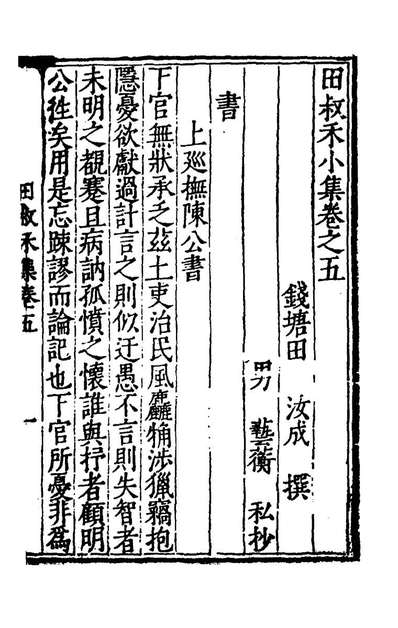 田叔禾小集卷之五
錢塘田 汝成 撰
男 藝蘅 私抄
書
上廵撫陳公書
下官無狀承乏茲土吏治民風麤觕涉獵竊抱
隱憂欲獻過計言之則似迂愚不言則失智者
未明之覩蹇且病訥孤憤之懷誰與抒者顧明
公徃矣用是忘踈謬而論記也下官所憂非爲
田叔禾集卷五
一